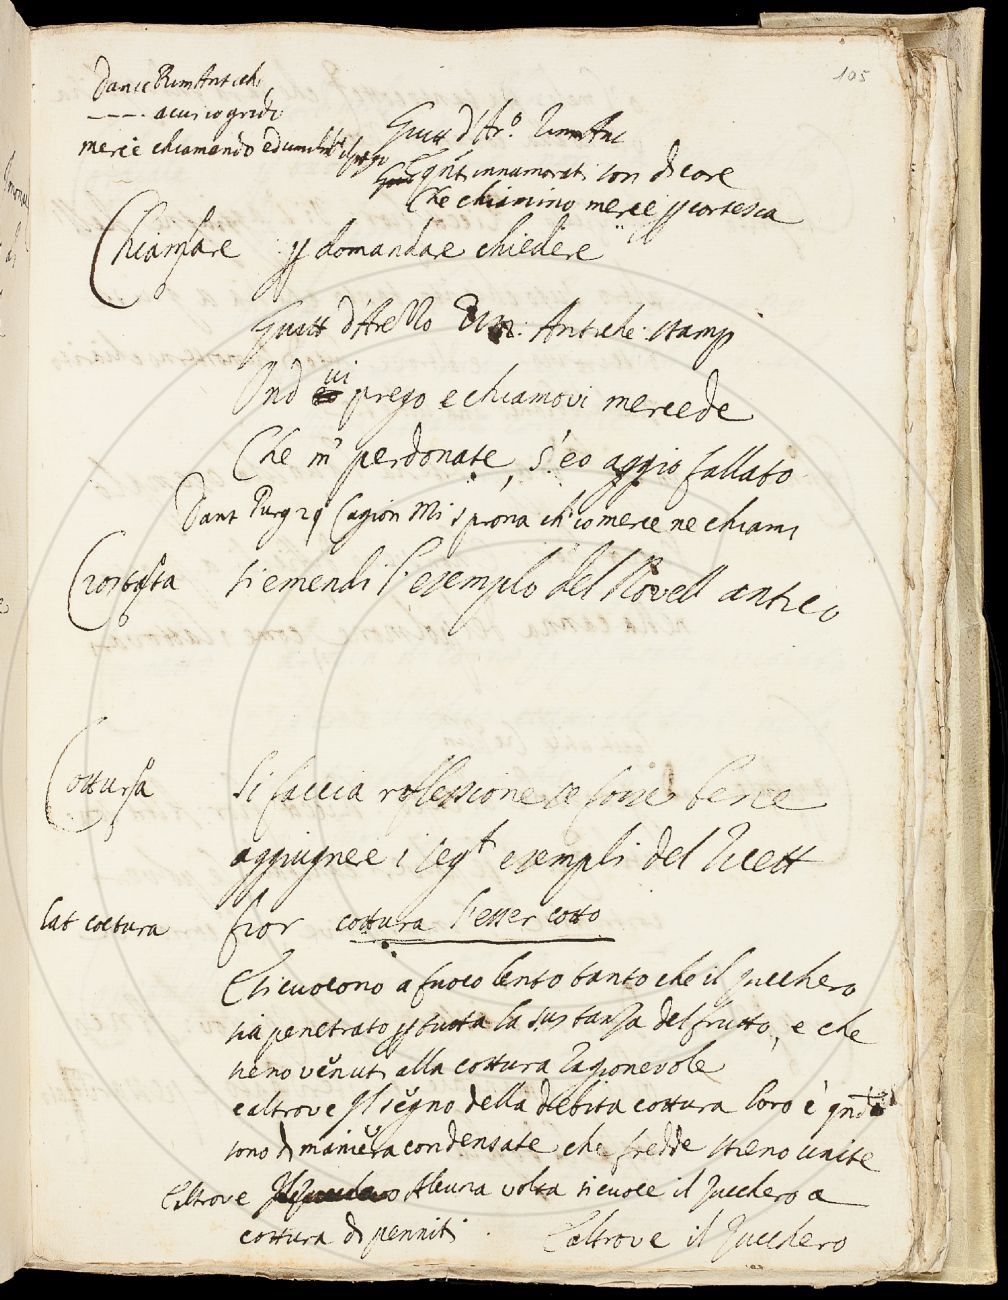 105
Dante Rim Antich
---- acui io grido
merce chiamando
Guitt d'Ar.º Rim Ant
innamorati son di core
Che chiamino merce p cortesia
Chiamare p domandare chiedere
Guitt d'Arezzo Rim: Antiche stamp
Ond vi prego e chiamovi mercede
Che mi perdonate, s'eo aggio fallato
Dant Purg 29 Cagion Mi sprona ch'io merce ne chiami
Crostata si emendi l'esempio del Novell antico
Cottura Si faccia reflessione se fosse bene
aggiugnere i segt esempli del Ricett
lat coctura fior cottura l'esser cotto
E si cuocono a fuoco lento tanto che il Zucchero
sia penetrato p tutta la sustanza del frutto, e che
sieno venuti alla cottura ragionevole
e altrove Il segno della debita cottura loro è qndo
sono di maniera condensate che fredde stieno unite
E altrove Alcuna volta si cuoce il Zucchero a
cottura di penniti. E altrove il Zucchero